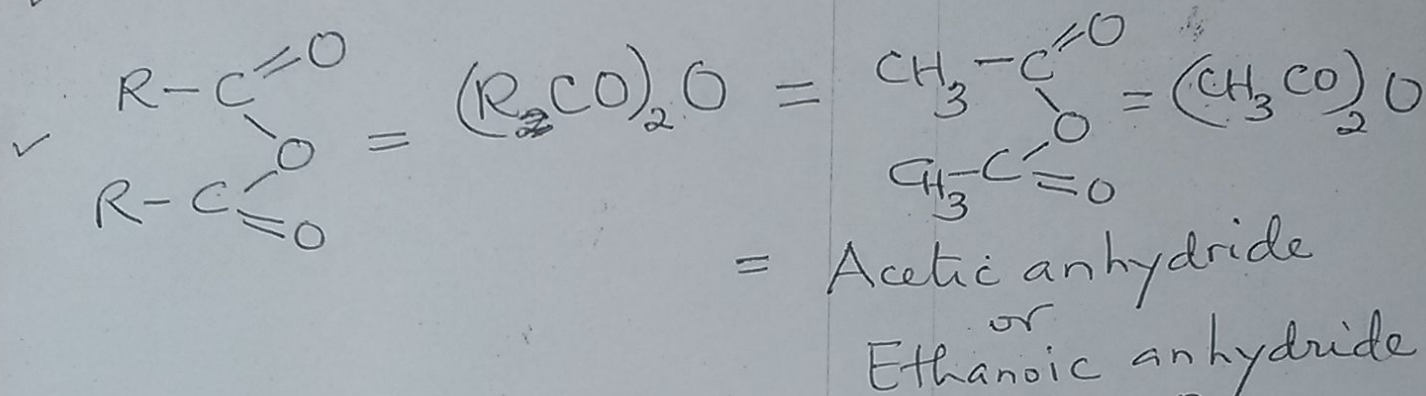 R-C=O
O = (R₂CO)₂O = CH₃-C=O
O = (CH₃CO)₂O
R-C=O
CH₃-C=O
= Acetic anhydride
or
Ethanoic anhydride